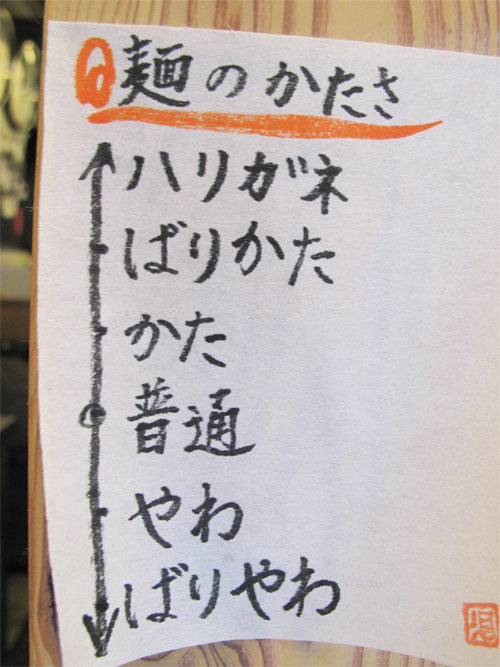 麺のかたさ
ハリガネ
ばりかた
かた
普通
やわ
ばりやわ